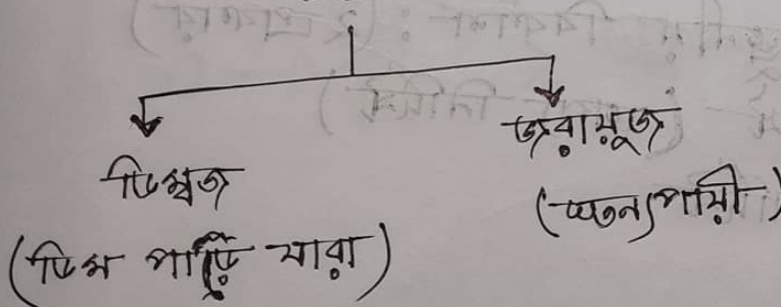 ডিম্বজ
(ডিম পাড়ে যারা)
জরায়ুজ
(স্তন্যপায়ী)